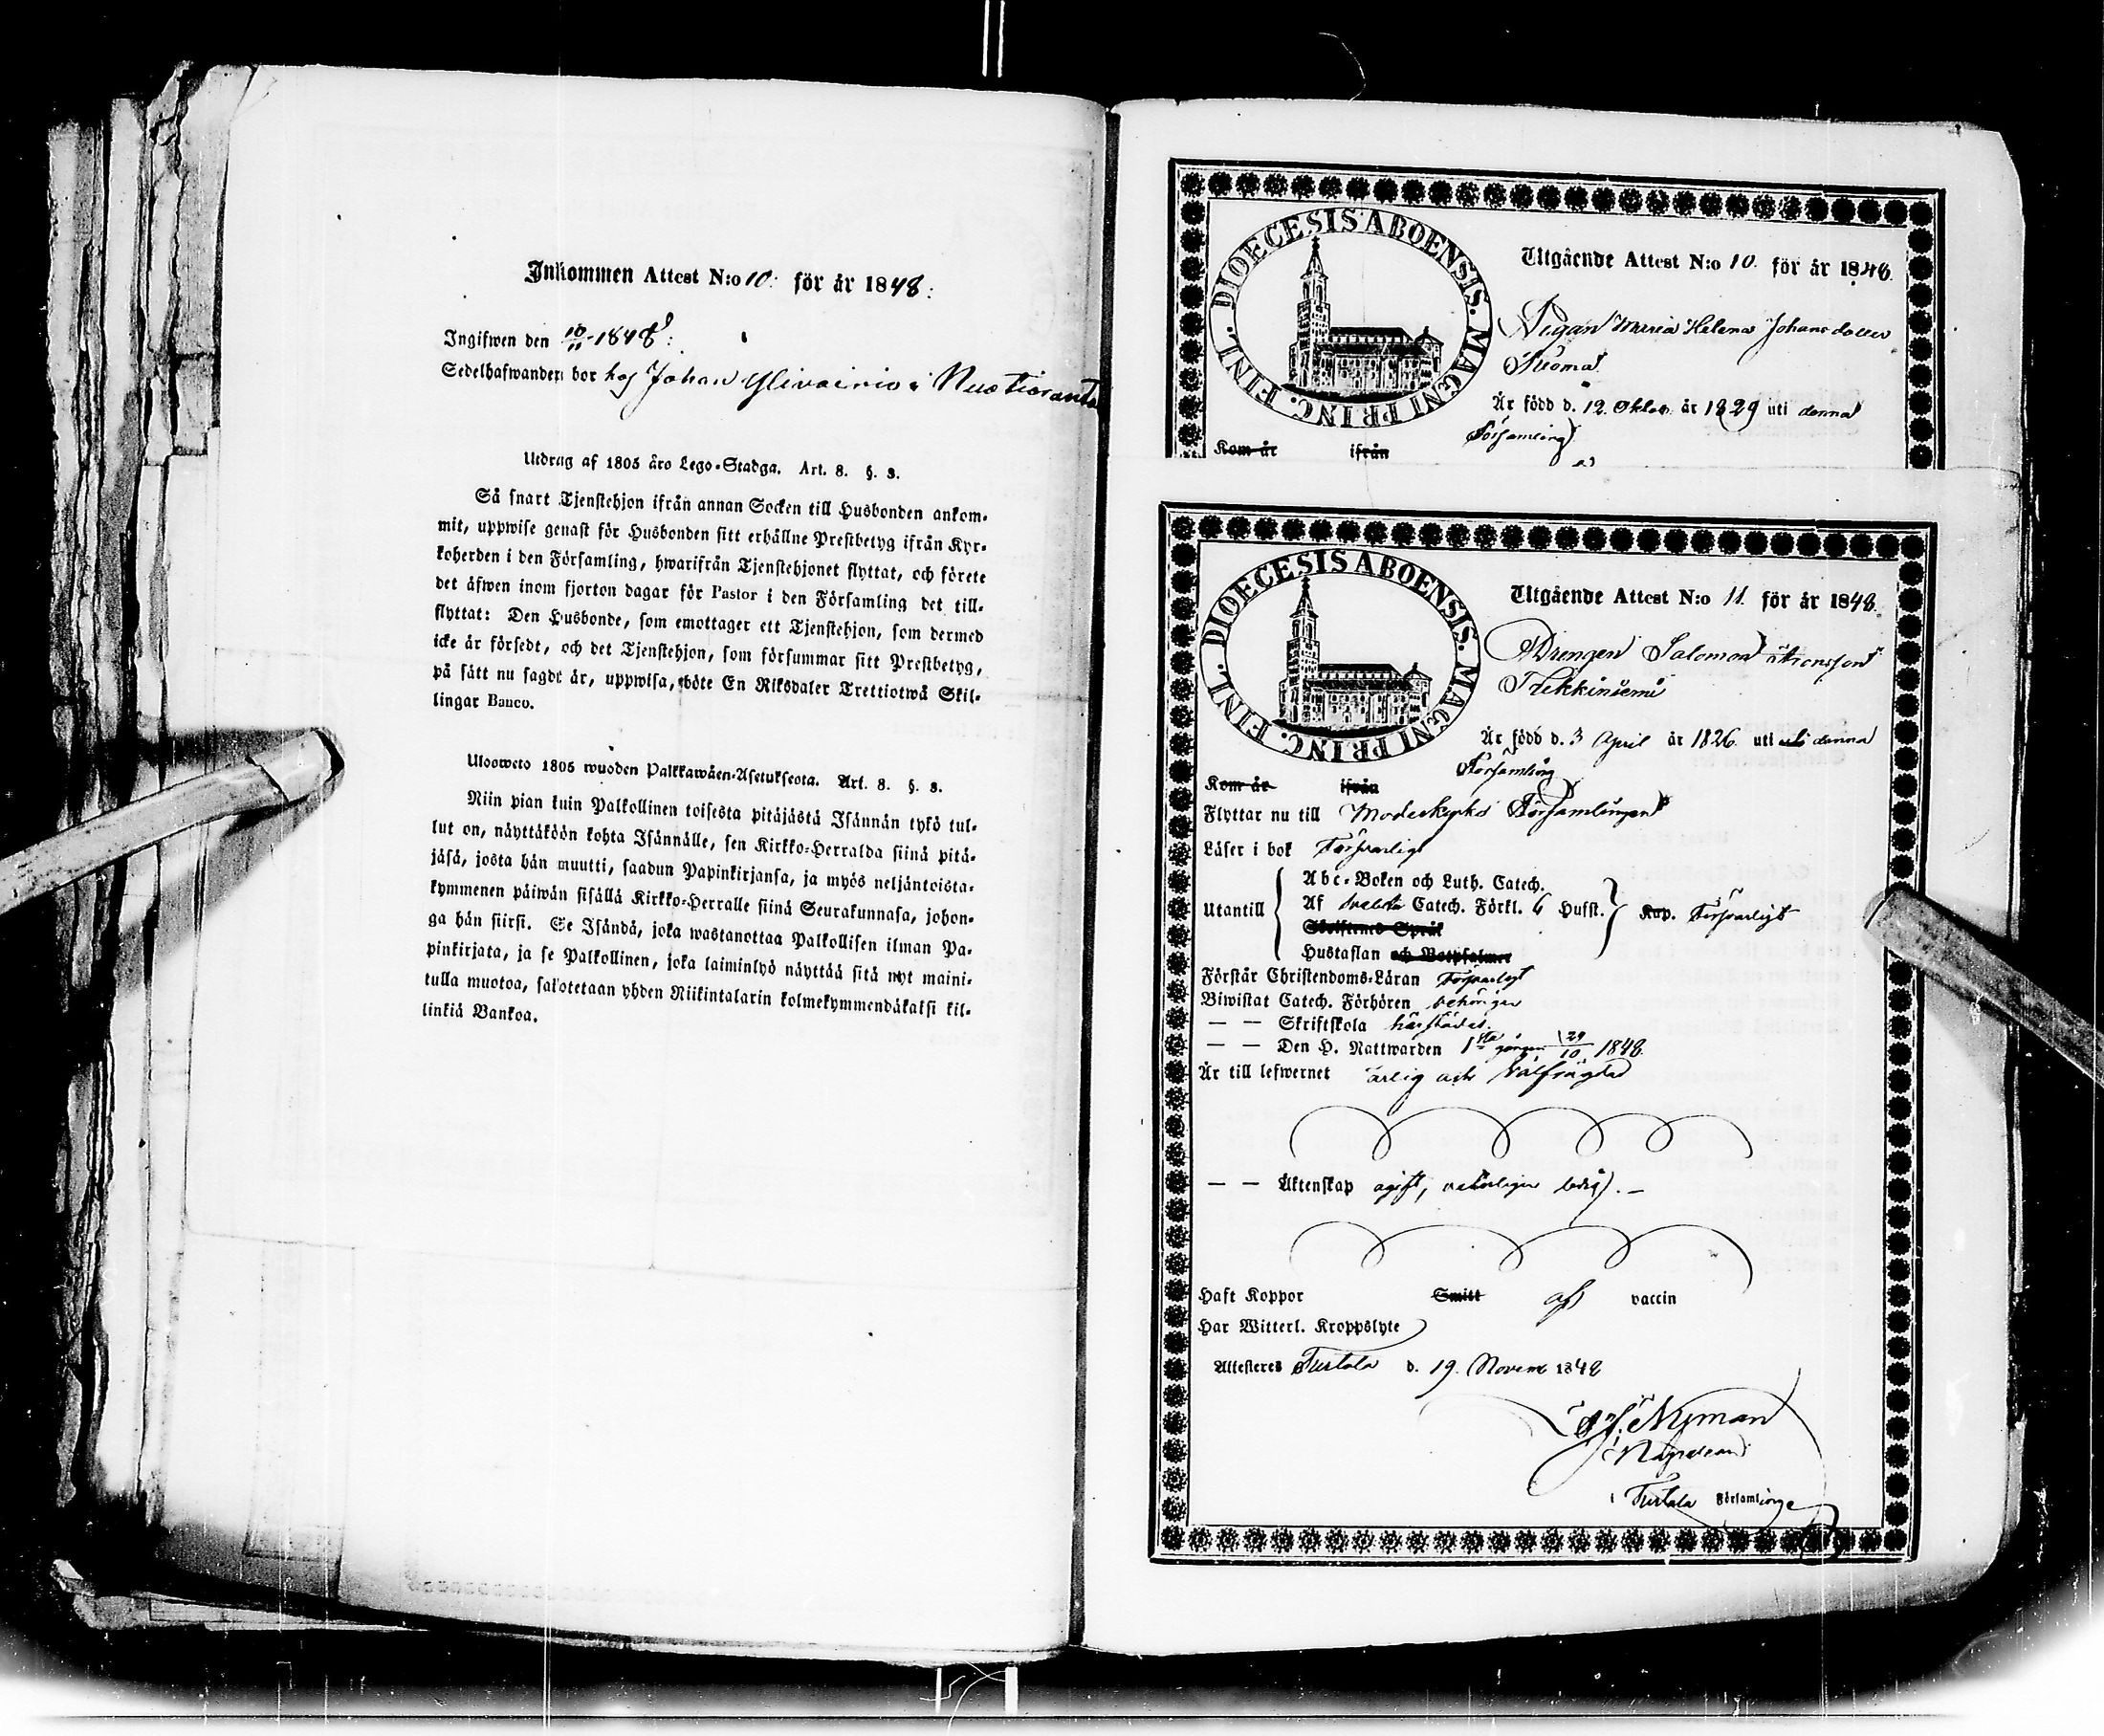 Inkommen Attest N:o 10: för år 1848:
Ingifwen den 10/11 1848:
Sedelhafwanden bor hos Johan Ylivainio i Nuotioranta
Utdrag af 1805 åro Lego-Stadga. Art. 8. §. 3.
Så snart Tjenstehjon ifrån annan Socken till Husbonden ankom-
mit, uppwise genast för Husbonden sitt erhållne Prestbetyg ifrån Kyr-
koherden i den Församling, hwarifrån Tjenstehjonet flyttat, och förete
det äfwen inom fjorton dagar för Pastor i den Församling det till-
flyttat: Den Husbonde, som emottager ett Tjenstehjon, som dermed
icke är försedt, och det Tjenstehjon, som försummar sitt Prestbetyg,
på sätt nu sagdt är, uppwisa, böte En Riksdaler Trettiotwå Skil-
lingar Banco.
Ulosweto 1805 wuoden Palkkawäen-Asetuksesta. Art. 8. §. 3.
Niin pian kuin Palkollinen toisesta pitäjästä Isännän tykö tul-
lut on, näyttäköön kohta Isännälle, sen Kirkko-Herralda siinä pitä-
jäsä, josta hän muutti, saadun Papinkirjansa, ja myös neljäntoista-
kymmenen päiwän sisällä Kirkko-Herralle siinä Seurakunnasa, johon-
ga hän siirsi. Se Isändä, joka wastanottaa Palkollisen ilman Pa-
pinkirjata, ja se Palkollinen, joka laiminlyö näyttää sitä nyt maini-
tulla muotoa, sakotetaan yhden Riikintalarin kolmekymmendäkaksi kil-
linkiä Bankoa.
DIOECESIS ABOENSIS. MAGNI PRINC. FINL.
Utgående Attest N:o 10. för år 1848.
Pigan Maria Helena Johansdotter
Är född d. 12. Oktob. år 1829 uti denna
Församling
Kom år ifrån
DIOECESIS ABOENSIS. MAGNI PRINC. FINL.
Utgående Attest N:o 11. för år 1848.
Drengen Salomon
Är född d. 3 April år 1826 uti denna
Församling
Kom år ifrån
Flyttar nu till Moderkyrko Församlingen
Läser i bok Försvarligt
Utantill
Abc-Boken och Luth. Catech.
Af Svebilii Catech. Förkl. 6 Hufst. Kap. Försvarligt
Skriftenes Språk
Hustaflan och Botpsalmer
Förstår Christendoms-Läran Försvarligt
Biwistat Catech. Förhören behörigen
— — Skriftskola härstädes.
— — Den H. Nattwarden 1sta gången 29/10 1848
Är till lefwernet ärlig och välfrägdad
— — Äktenskap ogift, veterligen ledig. —
Haft Koppor Smitt af vaccin
Har Witterl. Kroppslyte
Attesteres Turtola d. 19. Novem 1848
Nyman
i Turtola Församling